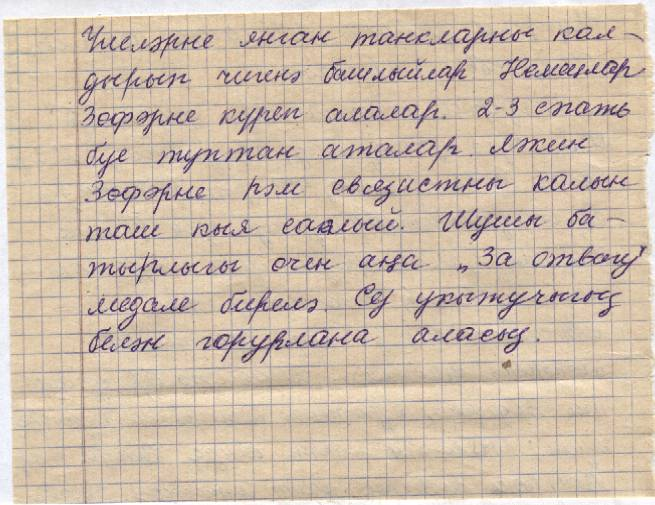 Үиеләрне янган танкларны кал-
дырып чигенә башлыйлар Немецлар
Зөфәрне күреп алалар. 2-3 сәгать
буе туптан аталар. Ләкин
Зөфәрне һәм связистны калын
таш кыя саклый. Шушы ба-
тырлыгы өчен аңа „За отвагу"
медале бирелә. Сез укытучыгыз
белән горурлана аласыз.